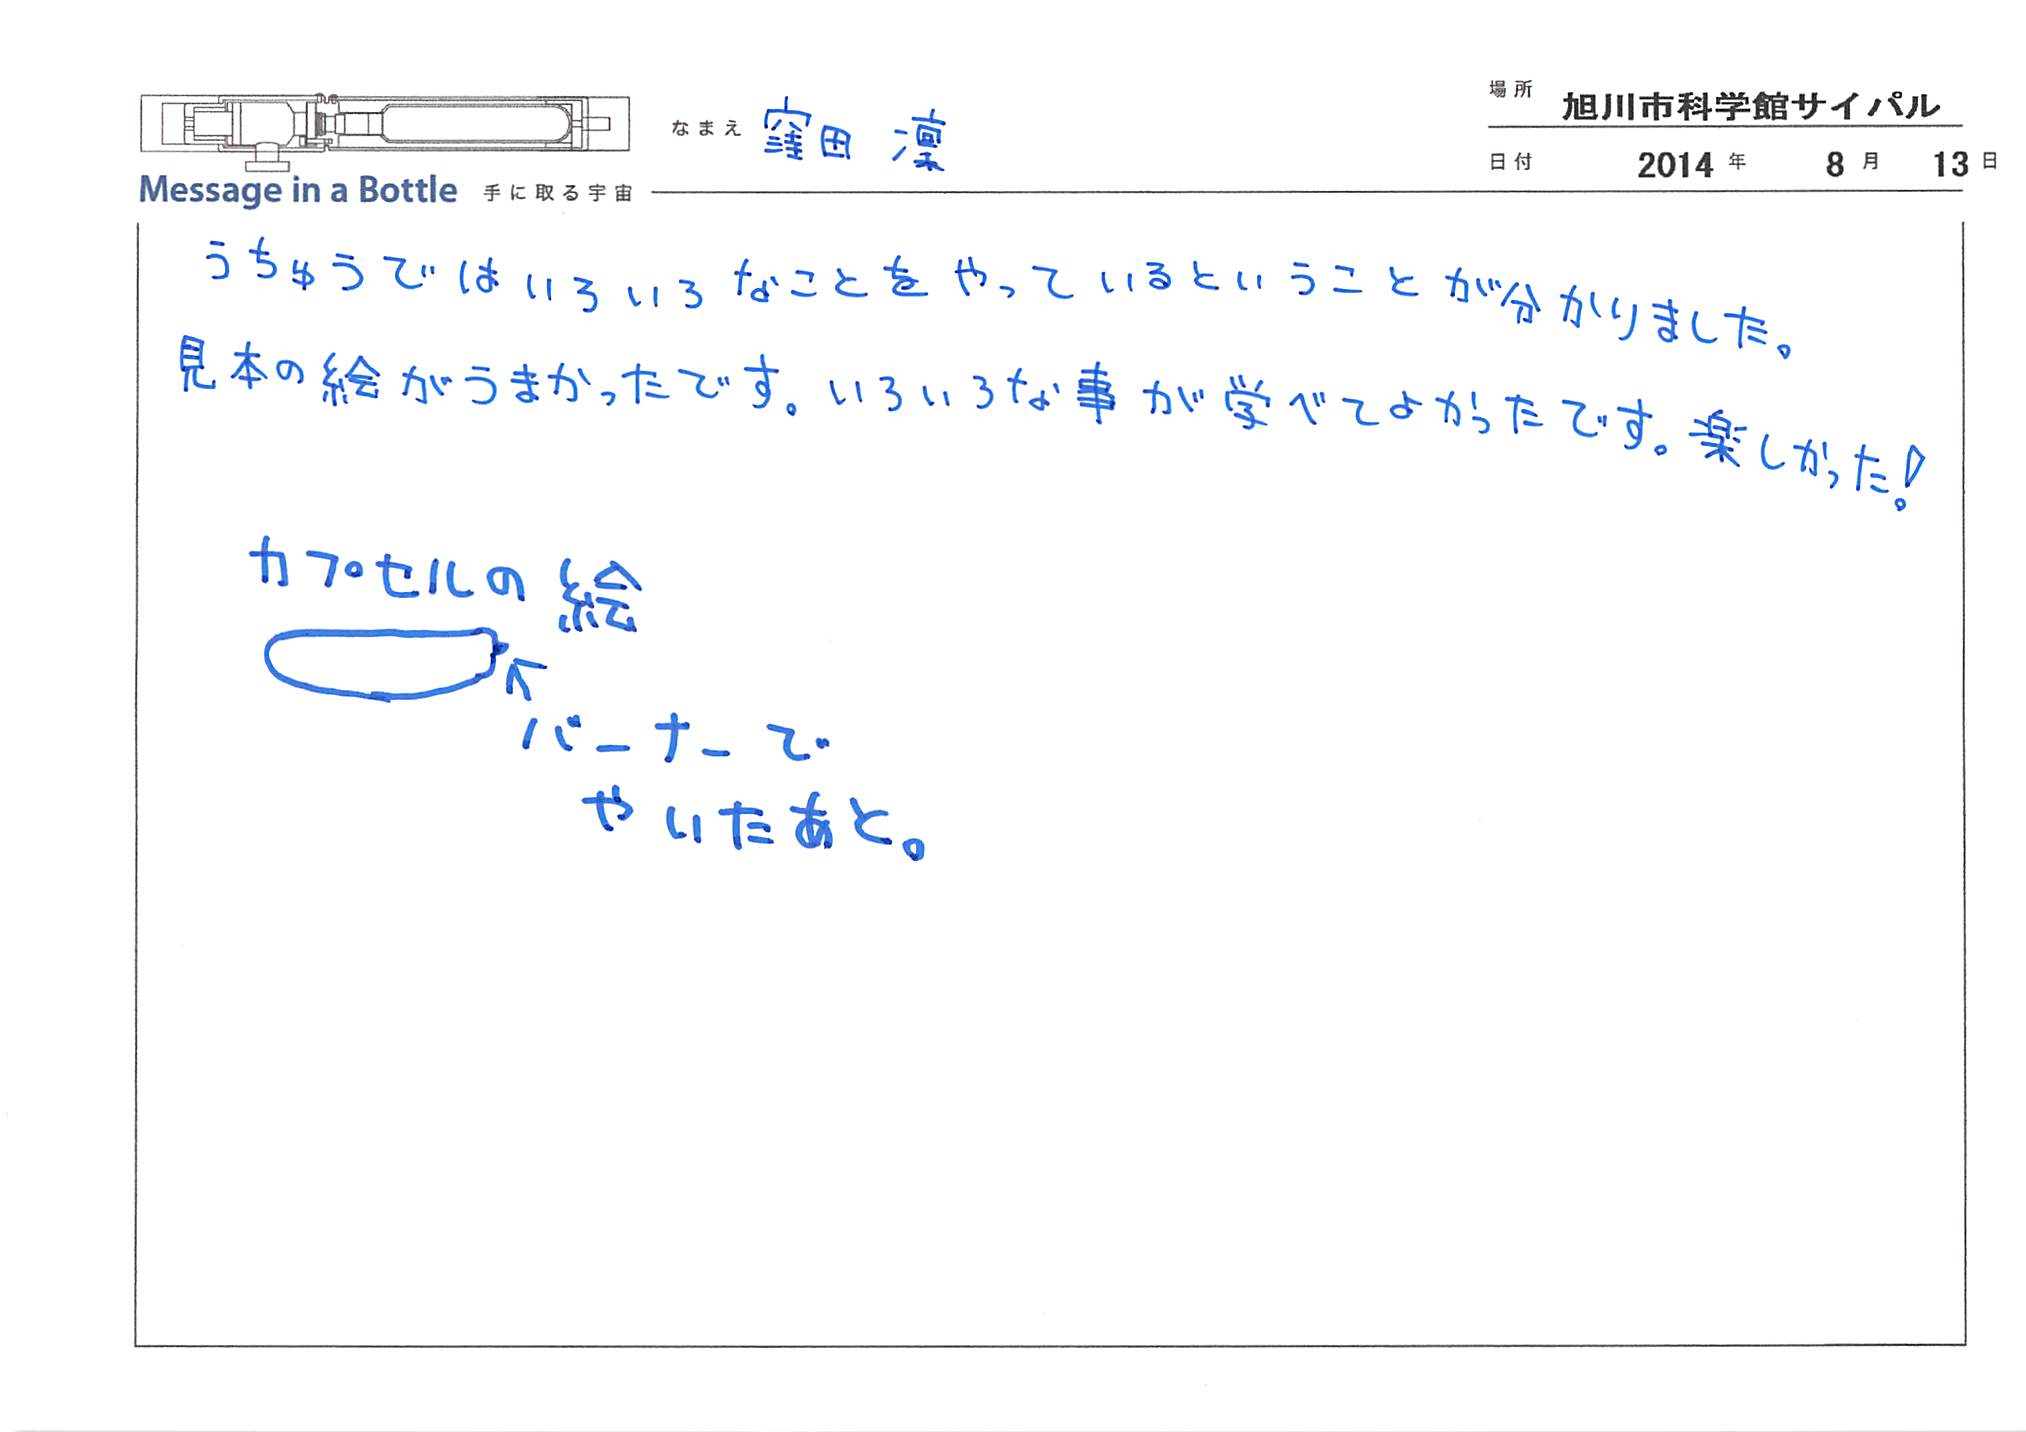 場所 旭川市科学館サイパル
なまえ 窪田 凜
日付 2014 年 8 月 13 日
Message in a Bottle 手に取る宇宙
うちゅうではいろいろなことをやっているということが分かりました。
見本の絵がうまかったです。いろいろな事が学べてよかったです。楽しかった!
カプセルの絵
バーナーで
やいたあと。